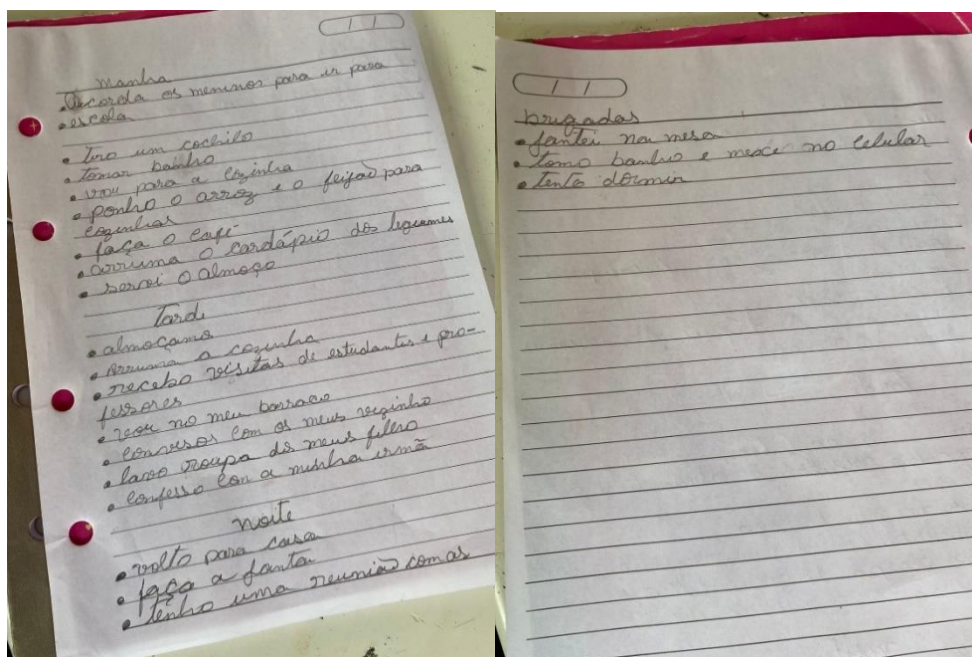 manhã
• Acorda os meninos para ir para
• escola
• tiro um cochilo
• tomar banho
• vou para a cozinha
• ponho o arroz e o feijão para
cozinhar
• faça o café
• arruma o cardápio dos legumes
• servi o almoço
Tarde
• almoçamo
• Arruma a cozinha
• recebo visitas de estudantes e pro-
fessores
• vou no meu barraco
• conversos com os meus vizinho
• lavo roupa dos meus filho
• confesso con a minha irmã
noite
• volto para casa
• faça a janta
• tenho uma reunião com as
brigadas
• jantei na mesa
• tomo banho e mexe no celular
• tento dormir